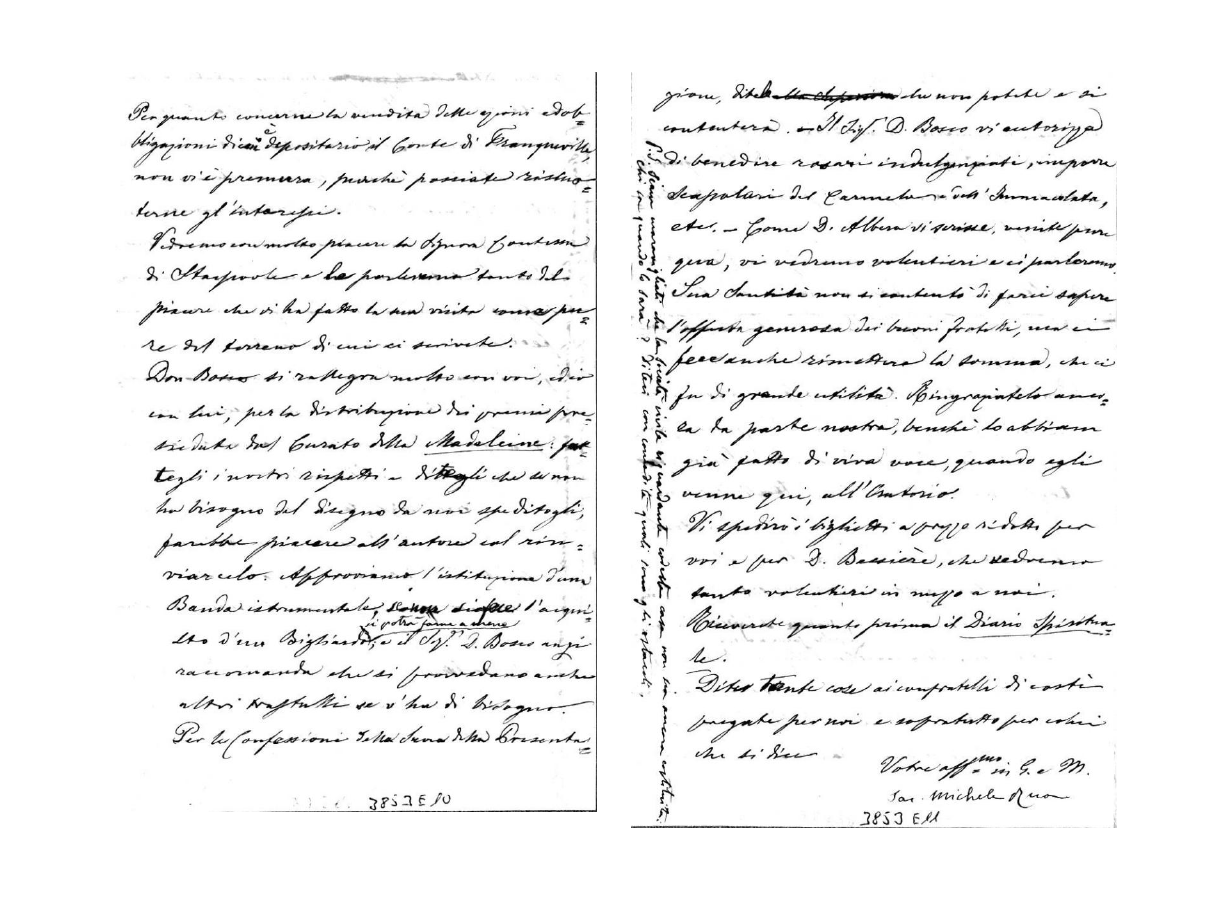 Per quanto concerne la vendita delle azioni ed ob=
bligazioni di cui è depositario il Conte di Franqueville,
non vi è premura, purchè possiate riscuo=
terne gl'interessi.
Vedremo con molto piacere la Signora Contessa
di Stacpoole e le parleremo tanto del
piacere che vi ha fatto la sua visita come pu=
re del terreno di cui ci scrivete.
Don Bosco si rallegra molto con voi, ed io
con lui, per la distribuzione dei premi pre=
sieduta dal Curato della Madeleine: fat=
tegli i nostri rispetti e ditegli che se non
ha bisogno del disegno da noi speditogli,
farebbe piacere all'autore col rin=
viarcelo. Approviamo l'istituzione d'una
Banda istrumentale, l'acqui=
si potrà farne a meno
sto d'un Bigliardo, e il Sig.r D. Bosco anzi
raccomanda che si provvedano anche
altri trastulli se v'ha di bisogno.
Per le Confessioni della Suora della Presenta=
3853 E 10
zione, dite che non potete e si
contenterà. Il Sig.r D. Bosco vi autorizza
di benedire rosari indulgenziati, imporre
Scapolari del Carmelo e dell'Immacolata,
etc. - Come D. Albera vi scrisse, venite pure
qua, vi vedremo volentieri e ci parleremo.
Sua Santità non si contentò di farci sapere
l'offerta generosa dei buoni fratelli, ma ci
fece anche rimettere la somma, che ci
fu di grande utilità. Ringraziatelo anco=
ra da parte nostra, benchè lo abbiam
già fatto di viva voce, quando egli
venne qui, all'Oratorio.
Vi spedirò i biglietti a prezzo ridotto per
voi e per D. Bessière, che vedremo
tanto volentieri in mezzo a noi.
Riceverete quanto prima il Diario Spiritua=
le.
Dite tante cose ai confratelli di costì
pregate per noi e sopratutto per colui
che si dice
Vostro aff.mo in G. e M.
Sac. Michele Rua
3853 E 11
P.S. Siamo maravigliati che la Società civile riguardante codesta casa non sia ancora costituita.
Chi sa quando lo sarà? Diteci con comodità quali sono gli ostacoli.